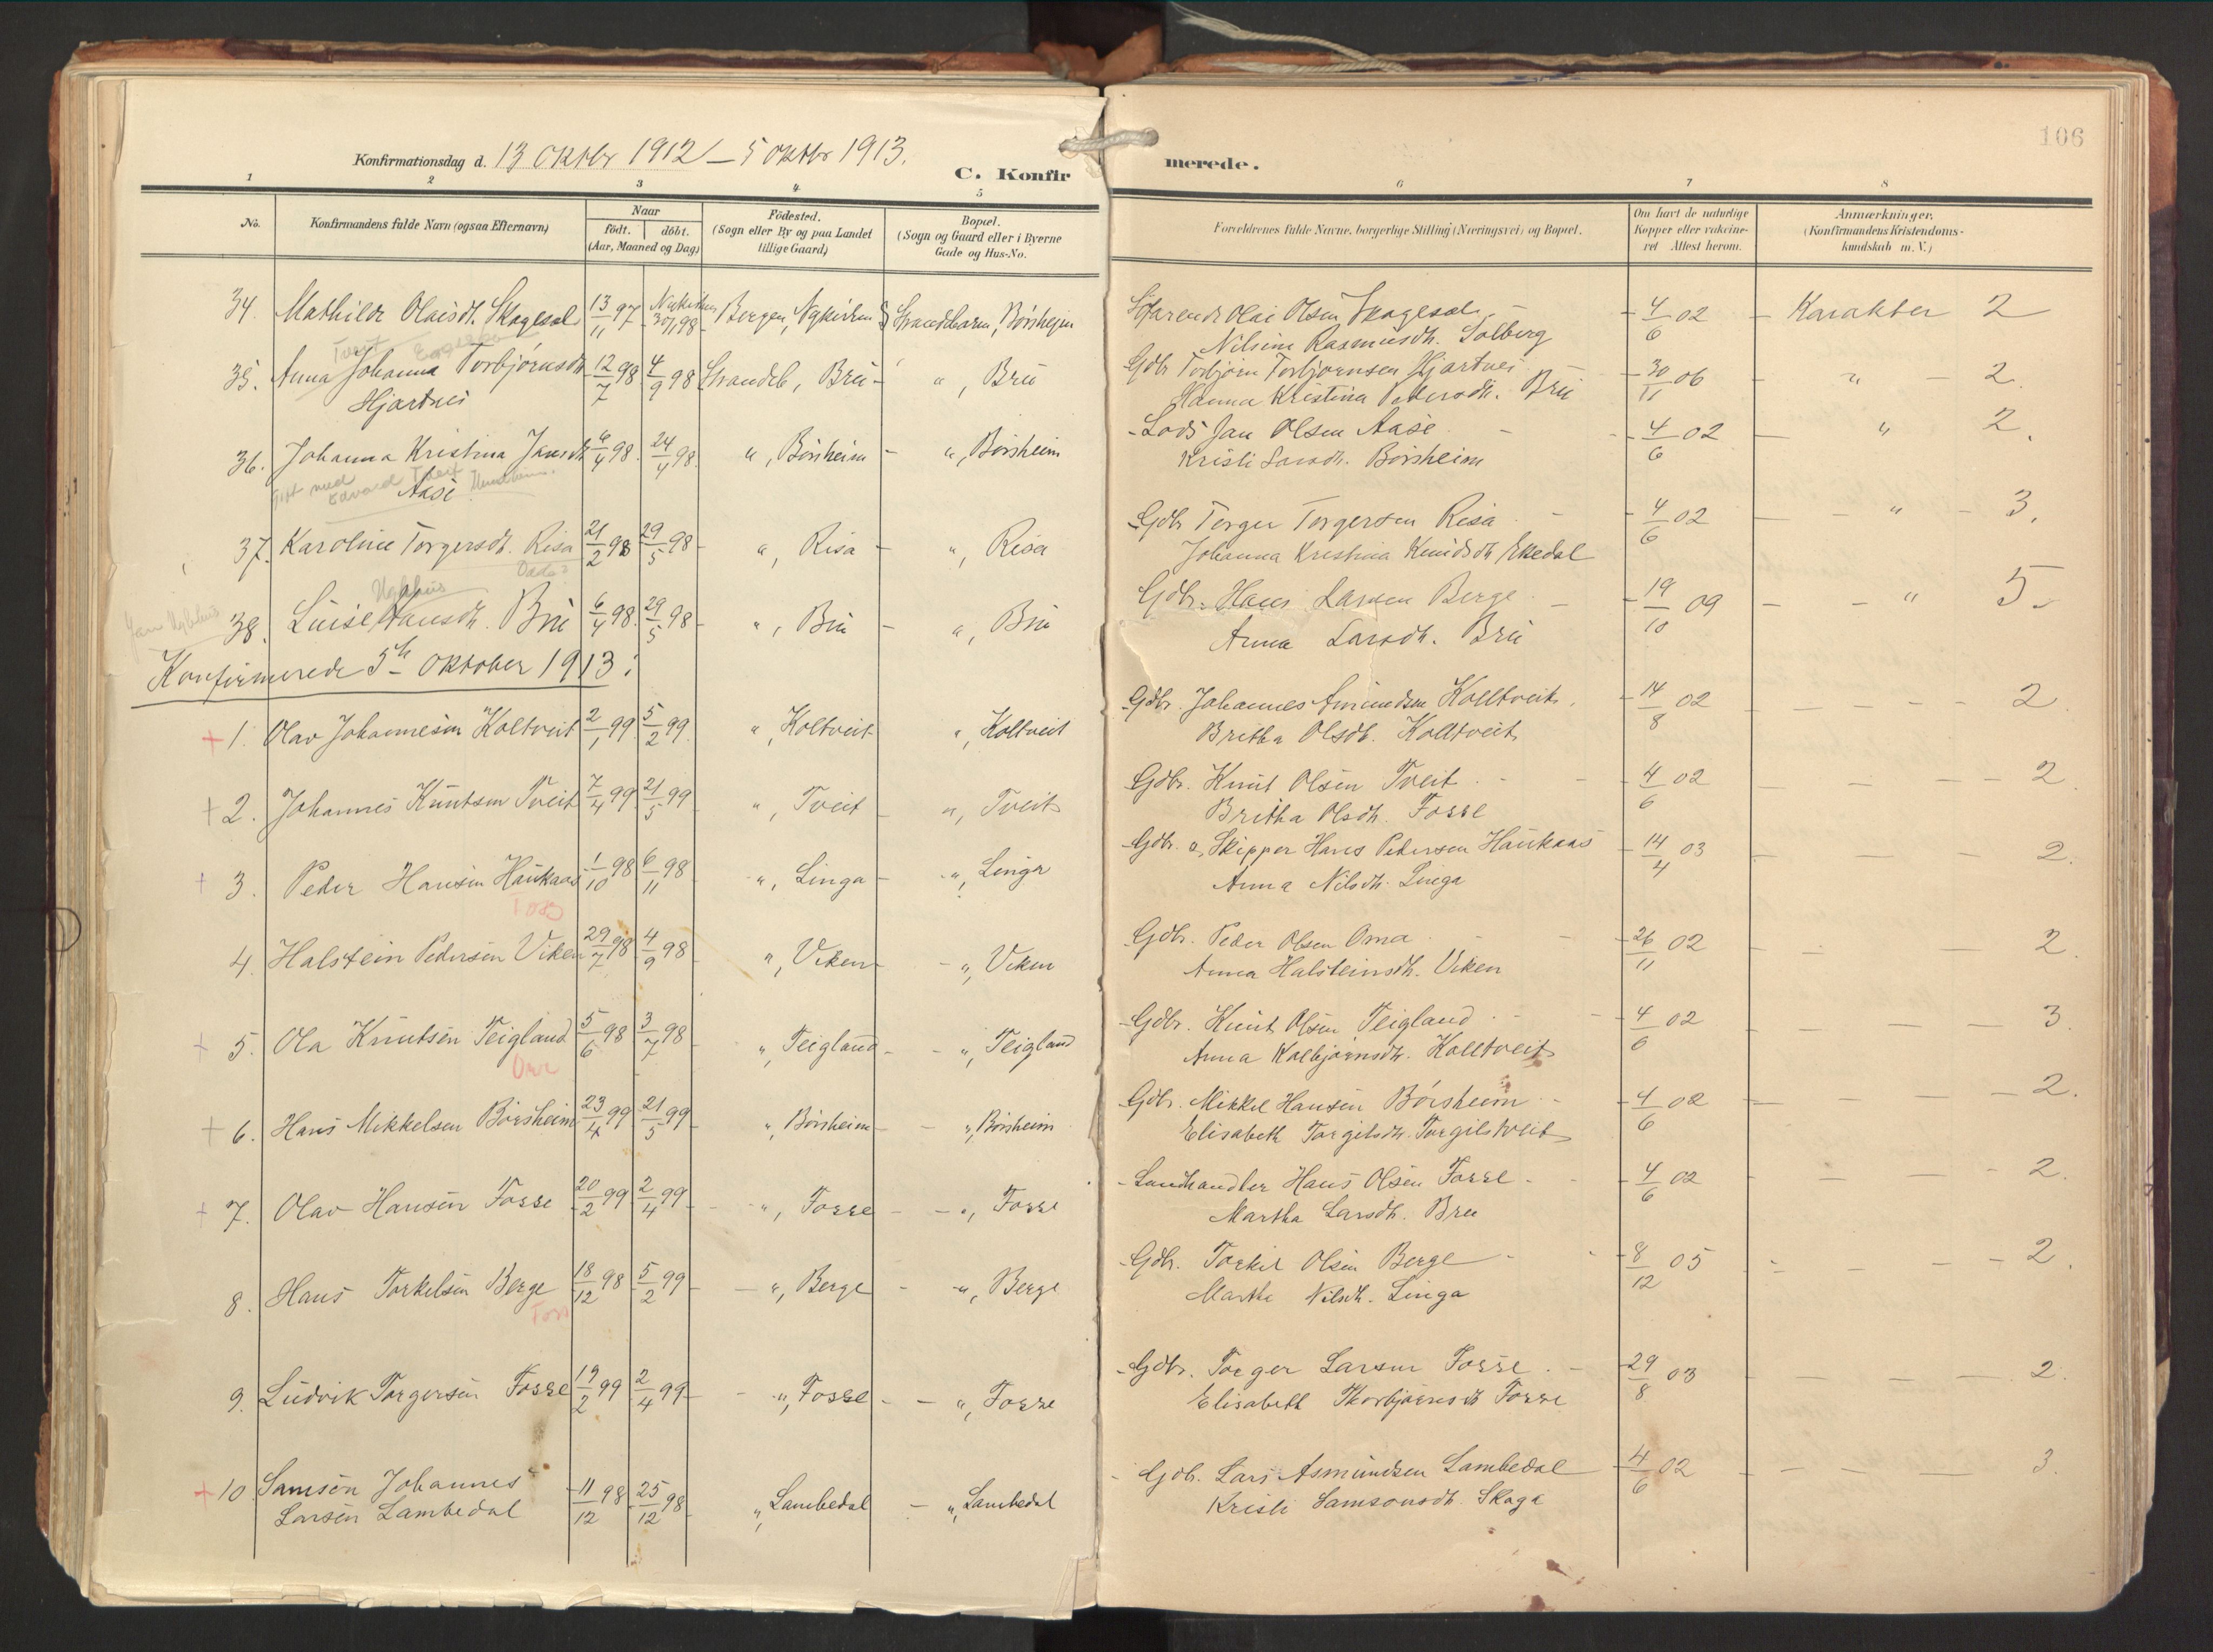 106
Konfirmationsdag d. 13 Oktbr 1912 – 5 Oktbr 1913.
C. Konfir merede.
1 2 3 4 5 6 7 8
No.
Konfirmandens fulde Navn (ogsaa Efternavn)
Naar
födt. döbt.
(Aar, Maaned og Dag)
Födested.
(Sogn eller By og paa Landet
tillige Gaard)
Bopæl.
(Sogn og Gaard eller i Byerne
Gade og Hus-No.
Forældrenes fulde Navne, borgerlige Stilling (Næringsvei) og Bopæl.
Om havt de naturlige
Kopper eller vakcine-
ret Attest herom.
Anmærkninger.
(Konfirmandens Kristendoms-
kundskab m. V.)
34. Mathilde Olaisdt. Skagesal 13/11 97 30/1 98 Bergen, Nykirken Strandebarm, Börsheim Olai Olsen Skagesal 4/6 02 – Karakter 2
Nilsine Rasmusdh. Solberg
35. Anna Johanna Torbjörnsdh 12/7 98 4/9 98 Strandeb, Bru – ", Bru Gdbr Torbjörn Torbjörnsen Hjartnes 30/11 06 " – 2.
Hjartnes Hanna Kristina Pedersdh. Bru
36. Johanna Kristina Jansdt 6/4 98. 24/4 98. ", Börsheim – ", Börsheim Lods Jan Olsen Aase 4/6 02 – " 2.
Gift med Edvard Tveit
Aase Kristi Larsdh. Börsheim
37. Karoline Torgersdt. Risa 21/2 98 29/5 98 ", Risa – ", Risa Gdbr Torger Torgersen Risa 4/6 02 – " – 3.
Johanna Kristina Knudsdt Ekedal
38. Luise Hansdh. Bru 6/4 98. 29/5 98 ", Bru – ", Bru Gdbr. Hans Larsen Berge 19/10 09 – " 5.
Anna Larsdh. Bru
Konfirmerede 5te Oktober 1913:
+ 1. Olav Johannesen Koltveit 2/1 99 5/2 99. ", Koltveit ", Koltveit Gdbr. Johannes Amundsen Kolltveit. 14/8 02 – 2
Britha Olsdt. Kolltveit
+ 2. Johannes Knutsen Tveit 7/4 99 21/5 99 ", Tveit – ", Tveit Gdbr. Knut Olsen Tveit 4/6 02 – 2
Britha Olsdh. Fosse
+ 3. Peder Hansen Haukaas 1/10 98 6/11 98 ", Linga – ", Linga Gdbr. o. Skipper Hans Pedersen Haukaas 14/4 03 – 2.
Anna Nilsdh. Linga
4. Halstein Pedersen Viken 29/7 98 4/9 98 ", Viken – ", Viken Gdbr. Peder Olsen Oma 26/11 02 – 2.
Anna Halsteinsdh. Viken
+ 5. Ola Knutsen Teigland 5/6 98 3/7 98 ", Teigland – ", Teigland Gdbr. Knut Olsen Teigland 4/6 02 – 3.
Anna Kolbjörnsdh. Kolltveit
+ 6. Hans Mikkelsen Börsheim 23/4 99 21/5 99 ", Börsheim – ", Börsheim Gdbr. Mikkel Hansen Börsheim 4/6 02 – 2.
Elisabeth Torgilsdh. Torgilstveit
+ 7. Olav Hansen Fosse 20/2 99 2/4 99 ", Fosse – ", Fosse Landhandler Hans Olsen Fosse 4/6 02 – 2.
Martha Larsdh. Bru
8. Hans Torkelsen Berge 18/12 98 5/2 99 ", Berge – ", Berge Gdbr. Torkel Olsen Berge 8/12 05 – 2.
Martha Nilsdh. Linga
9. Ludvik Torgersen Fosse 19/2 99 2/4 99 ", Fosse – ", Fosse Gdbr. Torger Larsen Fosse 29/8 03 – 2.
Elisabeth Thorbjörnsdt Fosse
+ 10 Samson Johannes 11/12 98 25/12 98 ", Lambedal – ", Lambedal Gdb. Lars Asmundsen Lambedal 4/6 02 – 3.
Larsen Lambedal Kristi Samsonsdh. Skaga